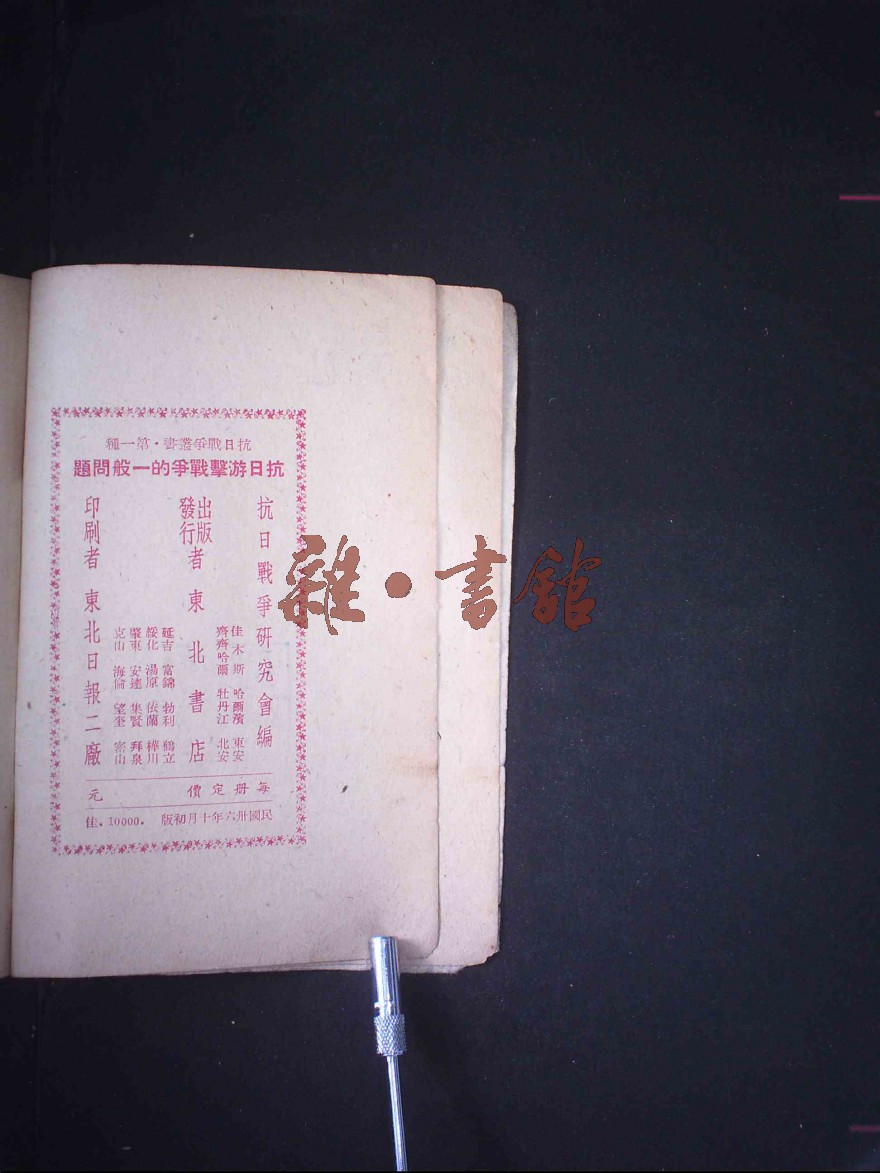 抗日戰爭叢書·第一種
抗日游擊戰爭的一般問題
抗日戰爭研究會編
出版
發行
者東北書店
佳木斯 哈爾濱 東安
齊齊哈爾 牡丹江 北安
延吉 富錦 勃利 鶴立
綏化 湯原 依蘭 樺川
肇東 安達 集賢 拜泉
克山 海倫 望奎 密山
印刷者 東北日報二廠
每册定價 元
民國卅六年十月初版 10000. 佳.
雜·書館